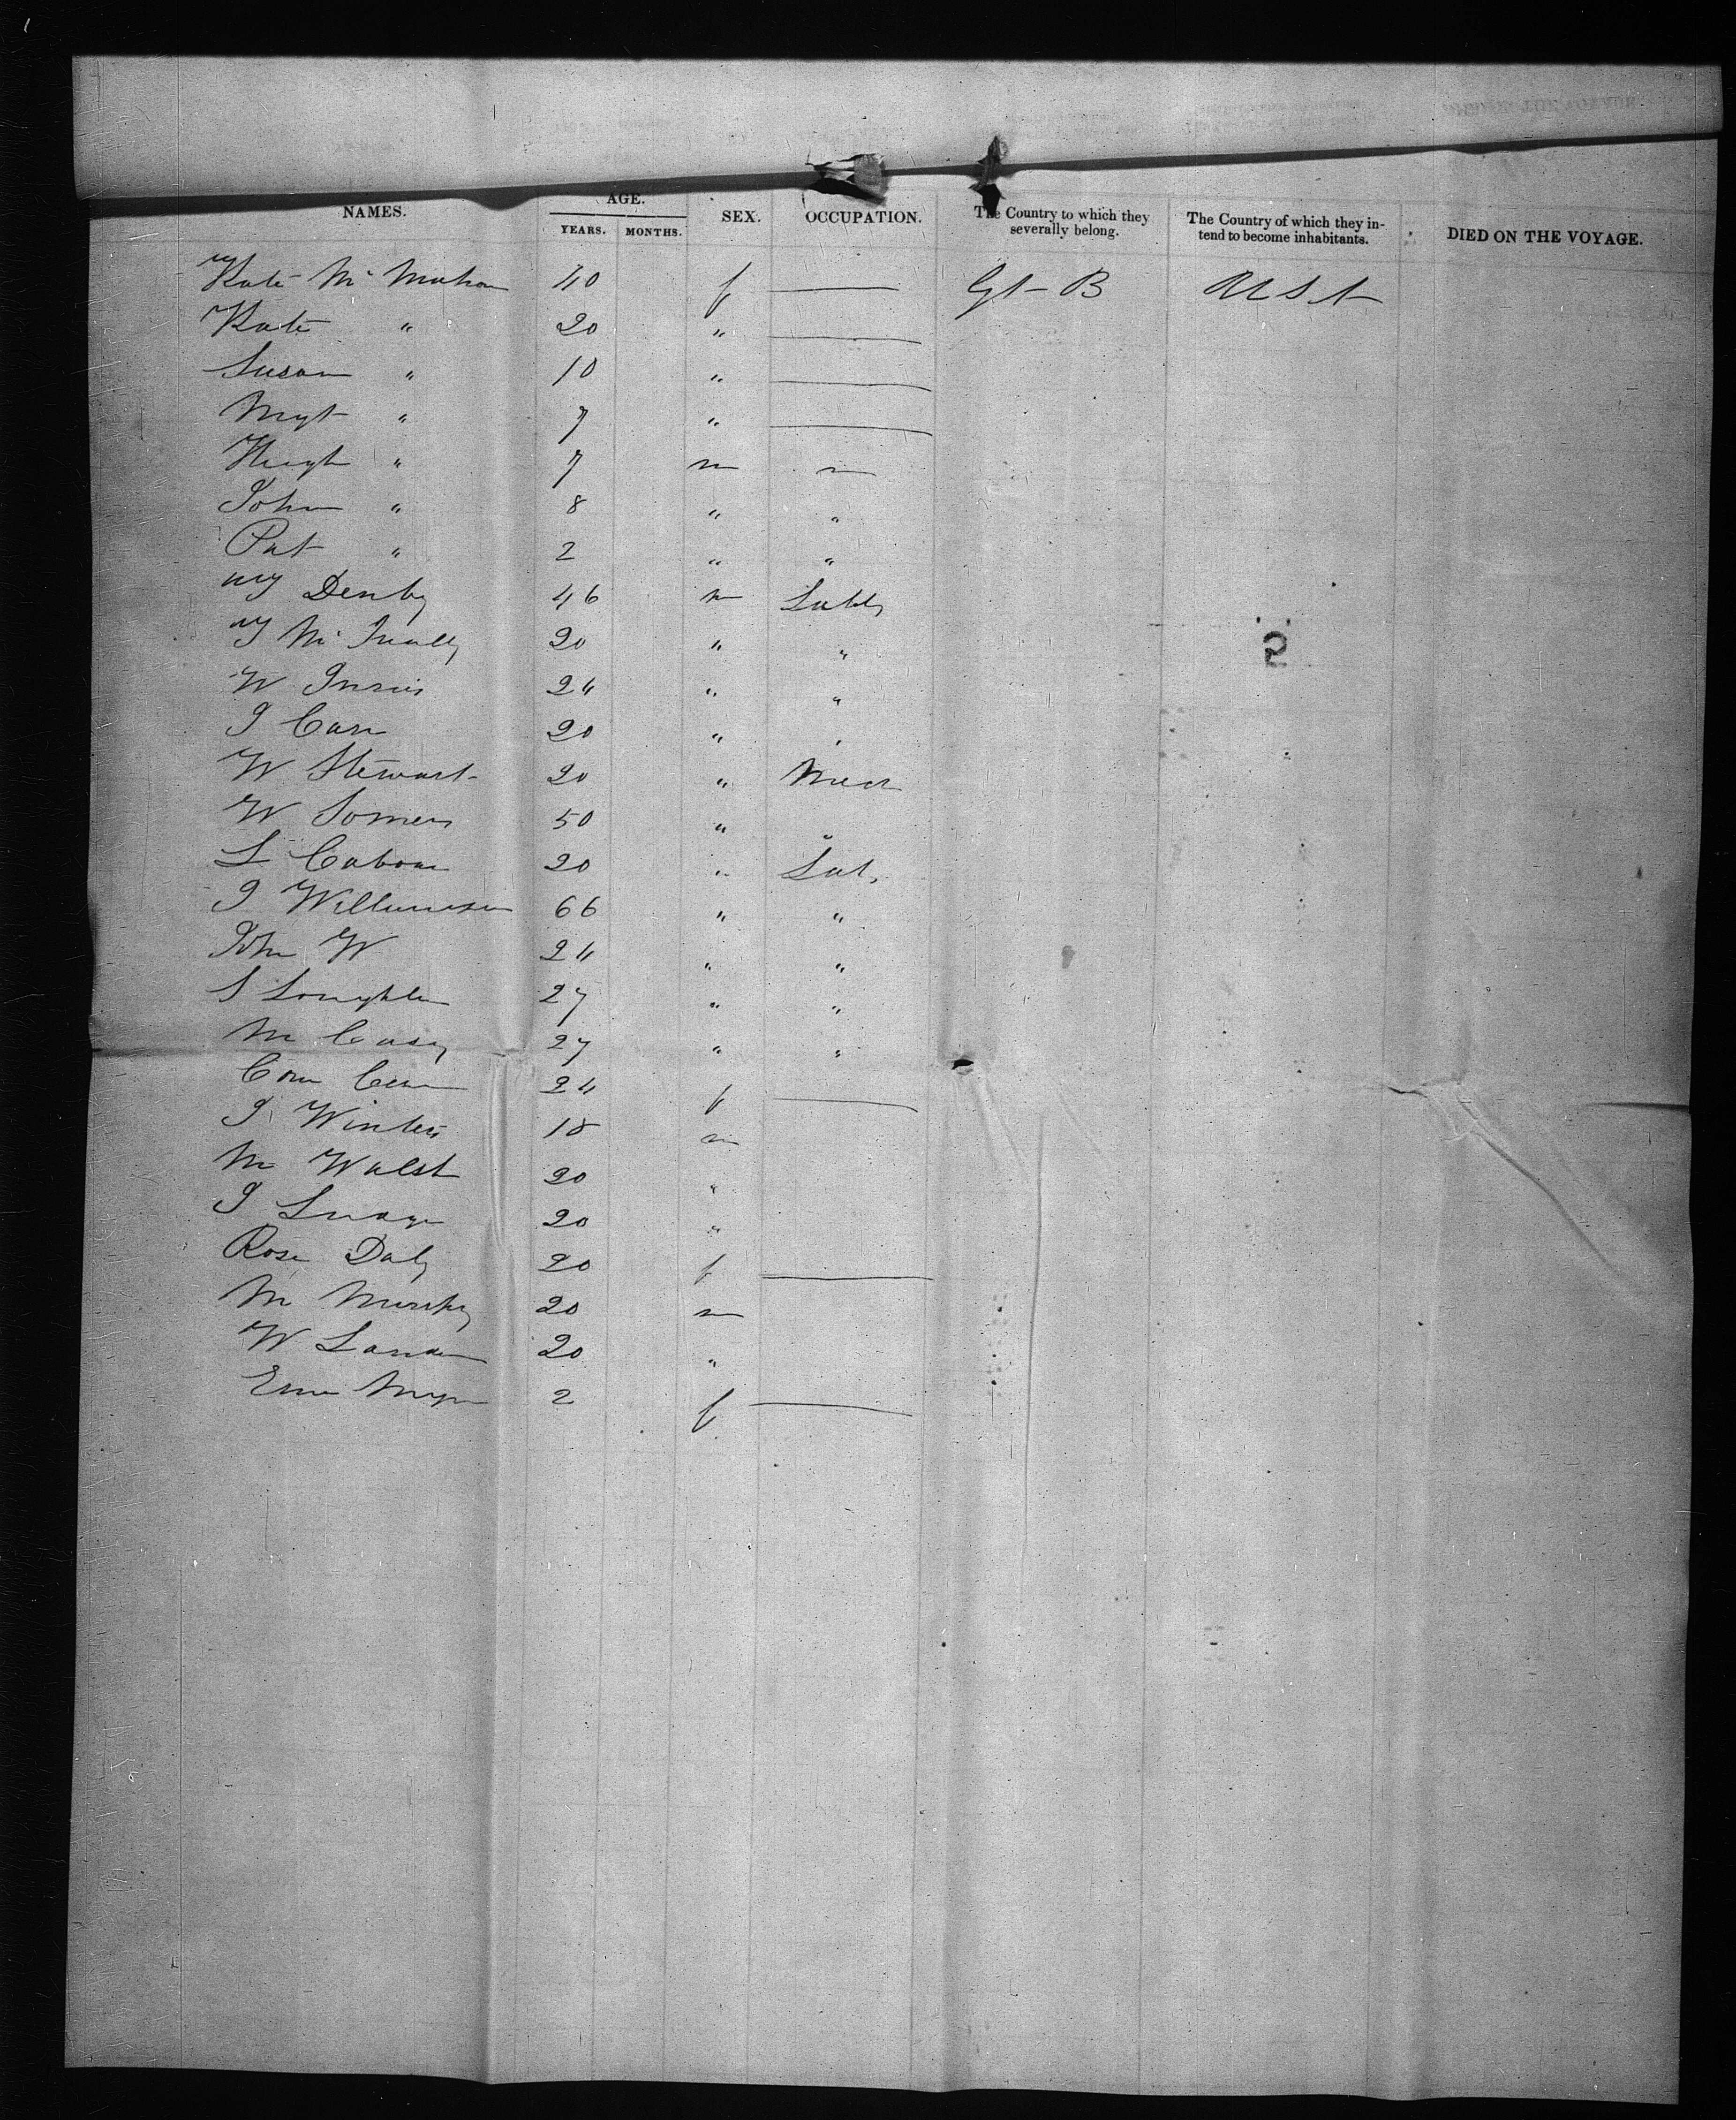 NAMES. AGE. YEARS. MONTHS. SEX. OCCUPATION. The Country to which they severally belong. The Country of which they intend to become inhabitants. DIED ON THE VOYAGE.
Kate Mc Mahon 40 f — Gt B U S A
Kate " 20 " —
Susan " 10 " —
Mgt " 7 " —
Hugh " 7 m
John " 8 " "
Pat " 2 " "
Denby 46 m
20 " "
W 24 " "
J Carr 20 " "
W Stewart 20 " Mech
W Somers 50 " "
L 20 " Lab
J Williamson 66 " "
John W 24 " "
S Loughlin 27 " "
M Casey 27 " "
24 f —
J Winters 18 m
M Walsh 20 "
J 20 "
Rose Daly 20 f —
M Murphy 20 m
W 20 "
2 f —